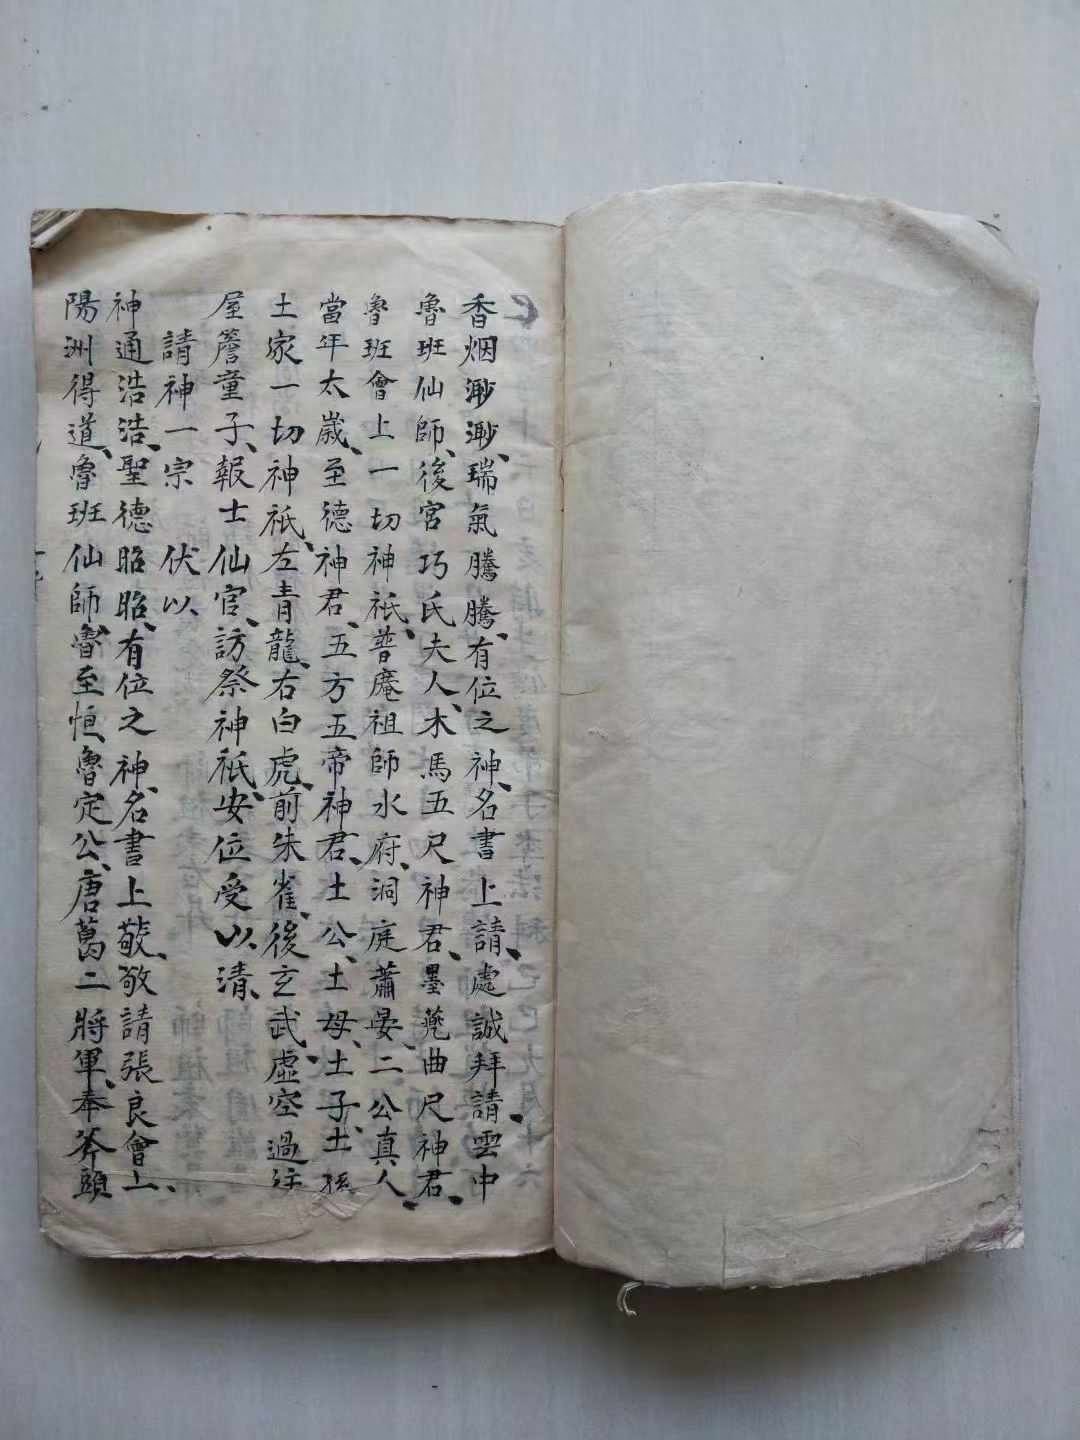 香烟渺渺、瑞氣騰騰、有位之神、名書上請、處誠拜請、雲中
魯班仙師、後宮巧氏夫人、木馬五尺神君、墨斗曲尺神君、
魯班會上一切神祇、普庵祖師水府、洞庭蕭晏二公真人、
當年太歲、至德神君、五方五帝神君、土公、土母、土子、土孫
土家一切神祇、左青龍、右白虎、前朱雀、後玄武、虛空過往
屋簷童子、報士仙官、訪察神祇、安位受以清、
請神一宗 伏以
神通浩浩、聖德昭昭、有位之神、名書上敬、敬請張良會上、
陽洲得道、魯班仙師、魯至恒、魯定公、唐葛二將軍、奉斧頭